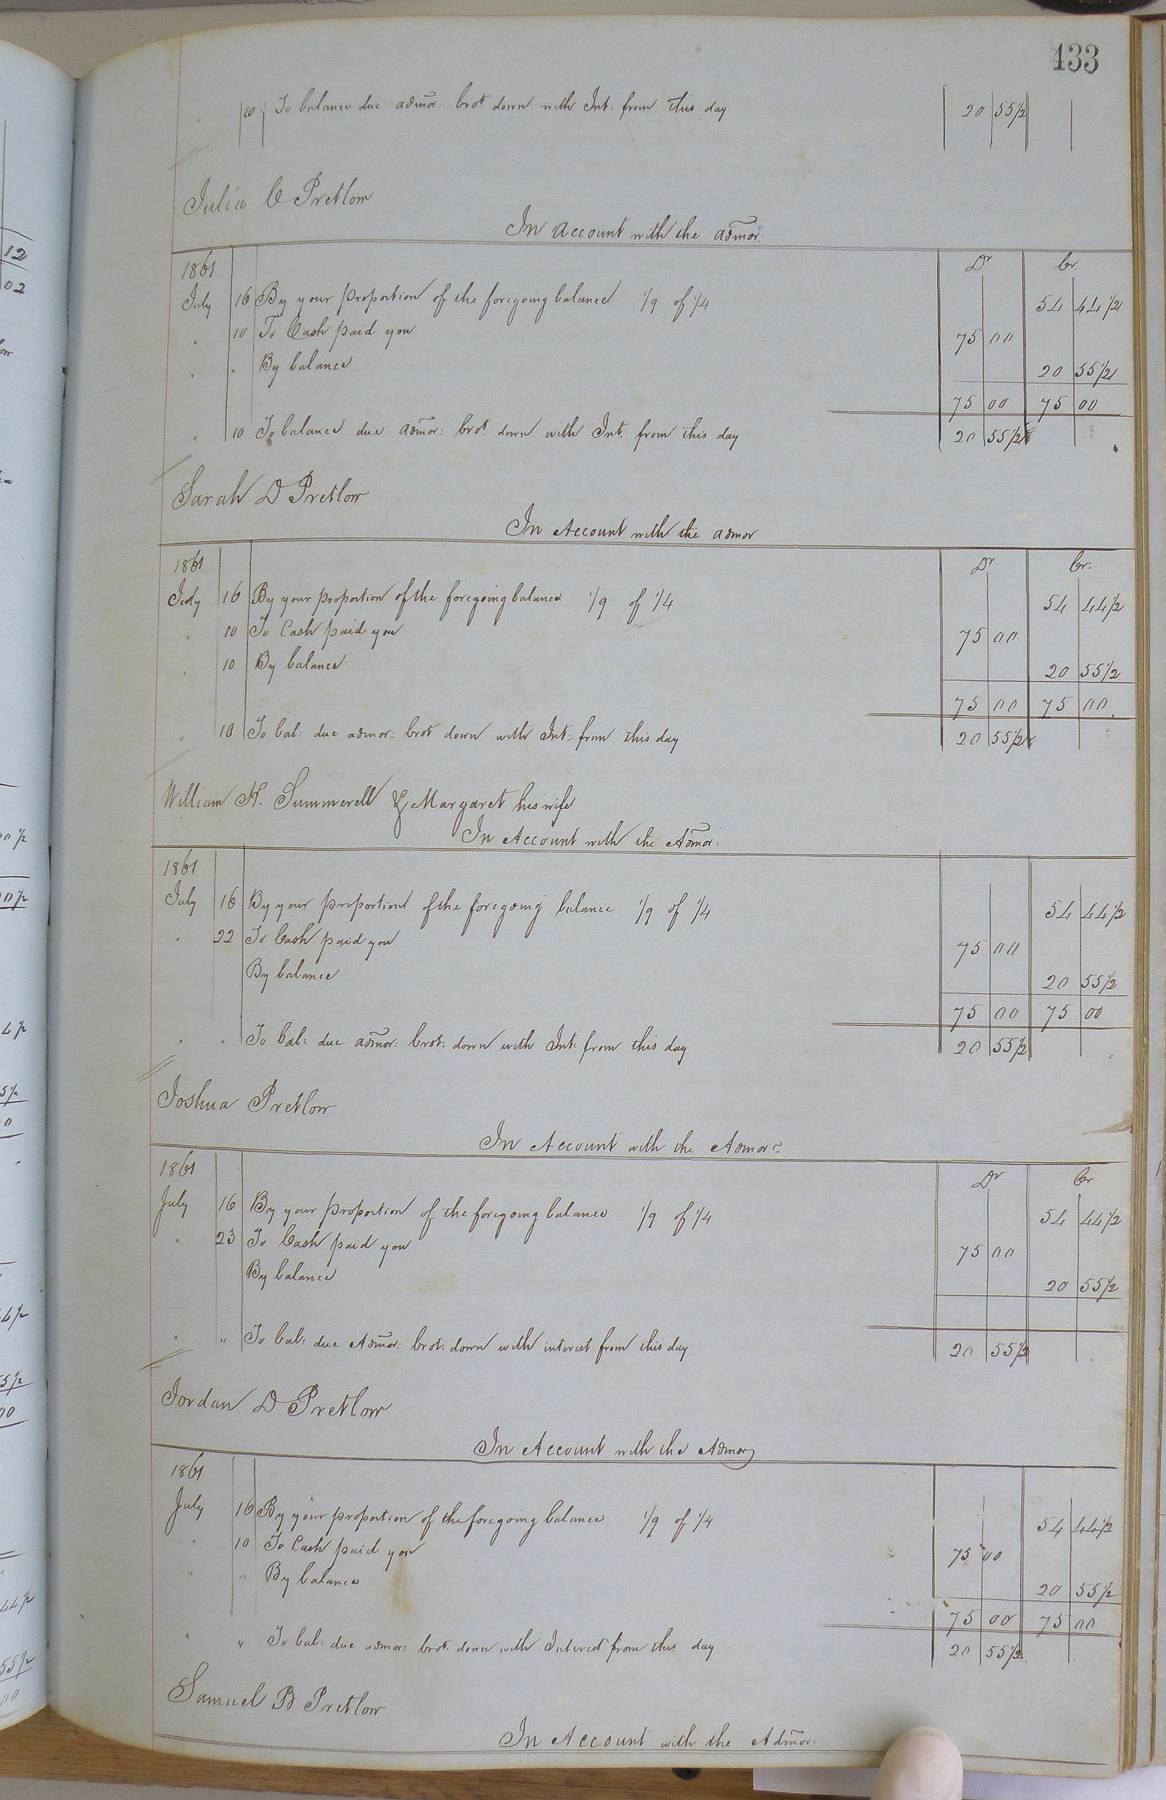 433
10 To balance due admor: brot. down with Int: from this day 20 55 1/2
Julia C Pretlow
In account with the admor:
1861 Dr Cr.
July 16 By your proportion of the foregoing balance 1/9 of 1/4 54 44 1/2
" 10 To Cash paid you 75 00
" " By balance 20 55 1/2
75 00 75 00
" 10 To balance due admor: brot. down with Int. from this day 20 55 1/2
Sarah D Pretlow
In Account with the admor
1861 Dr Cr.
July 16 By your proportion of the foregoing balance 1/9 of 1/4 54 44 1/2
" 10 To Cash paid you 75 00
" 10 By balance 20 55 1/2
75 00 75 00
" 10 To bal: due admor: brot down with Int: from this day 20 55 1/2
William H. Summerell & Margaret his wife
In Account with the Admor:
1861
July 16 By your proportion of the foregoing balance 1/9 of 1/4 54 44 1/2
" 22 To Cash paid you 75 00
By balance 20 55 1/2
75 00 75 00
" " To bal: due admor: brot: down with Int: from this day 20 55 1/2
Joshua Pretlow
In Account with the Admor:
1861 Dr Cr
July 16 By your proportion of the foregoing balance 1/9 of 1/4 54 44 1/2
" 23 To Cash paid you 75 00
By balance 20 55 1/2
" " To bal: due Admor: brot: down with interest from this day 20 55 1/2
Jordan D Pretlow
In Account with the Admor
1861
July 16 By your proportion of the foregoing balance 1/9 of 1/4 54 44 1/2
" 10 To Cash paid you 75 00
" " By balance 20 55 1/2
75 00 75 00
" " To bal: due admor: brot. down with Interest from this day 20 55 1/2
Samuel B Pretlow
In Account with the Admor: